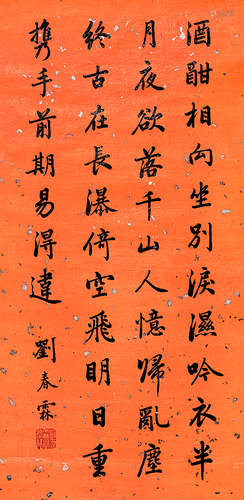 酒酣相向坐別淚濕吟衣半
月夜欲落千山人憶歸亂塵
終古在長瀑倚空飛明日重
攜手前期易得違 劉春霖